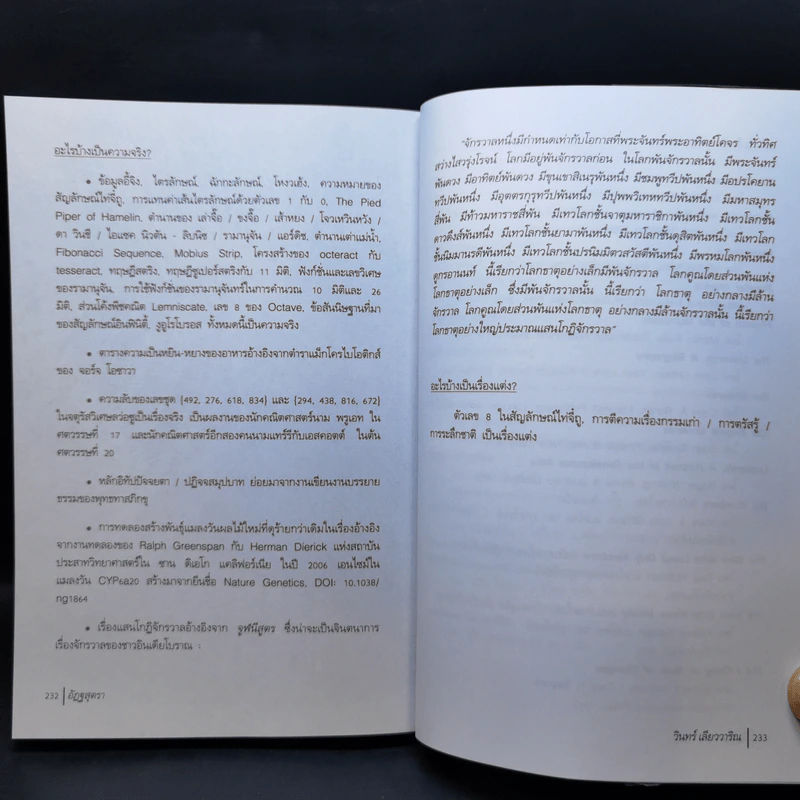 อะไรบ้างเป็นความจริง?
• ข้อมูลอี้จิง, ไตรลักษณ์, ฉักกะลักษณ์, โหงวเฮ้ง, ความหมายของ
สัญลักษณ์ไท่จี๋ถู, การแทนค่าเส้นไตรลักษณ์ด้วยตัวเลข 1 กับ 0, The Pied
Piper of Hamelin, ตำนานของ เล่าจื๊อ / ขงจื๊อ / เส้าหยง / โจวเหวินหวัง /
ดา วินชี / ไอแซค นิวตัน - ลิบนิซ / รามานุจัน / แอร์ดิช, ตำนานเต่าแม่น้ำ,
Fibonacci Sequence, Mobius Strip, โครงสร้างของ octeract กับ
tesseract, ทฤษฎีสตริง, ทฤษฎีซูเปอร์สตริงกับ 11 มิติ, ฟังก์ชันและเลขวิเศษ
ของรามานุจัน, การใช้ฟังก์ชันของรามานุจันในการคำนวณ 10 มิติและ 26
มิติ, ส่วนโค้งพีชคณิต Lemniscate, เลข 8 ของ Octave, ข้อสันนิษฐานที่มา
ของสัญลักษณ์อินฟินิตี้, งูอูโรโบรอส ทั้งหมดนี้เป็นความจริง
• ตารางความเป็นหยิน-หยางของอาหารอ้างอิงจากตำราแม็กโครไบโอติกส์
ของ จอร์จ โอซาวา
• ความลับของเลขชุด (492, 276, 618, 834) และ (294, 438, 816, 672)
ในจตุรัสวิเศษลว่อซูเป็นเรื่องจริง เป็นผลงานของนักคณิตศาสตร์นาม พรูเอท ใน
ศตวรรษที่ 17 และนักคณิตศาสตร์อีกสองคนนามแทร์รีกับเอสคอตต์ ในต้น
ศตวรรษที่ 20
• หลักอิทัปปัจจยตา / ปฏิจจสมุปบาท ย่อยมาจากงานเขียนงานบรรยาย
ธรรมของพุทธทาสภิกขุ
• การทดลองสร้างพันธุ์แมลงวันผลไม้ใหม่ที่ดุร้ายกว่าเดิมในเรื่องอ้างอิง
จากงานทดลองของ Ralph Greenspan กับ Herman Dierick แห่งสถาบัน
ประสาทวิทยาศาสตร์ใน ซาน ดิเอโก แคลิฟอร์เนีย ในปี 2006 เอนไซม์ใน
แมลงวัน CYP6a20 สร้างมาจากยีนชื่อ Nature Genetics, DOI: 10.1038/
ng1864
• เรื่องแสนโกฏิจักรวาลอ้างอิงจาก จูฬนีสูตร ซึ่งน่าจะเป็นจินตนาการ
เรื่องจักรวาลของชาวอินเดียโบราณ :
232 | อัฏฐสุตรา
"จักรวาลหนึ่งมีกำหนดเท่ากับโอกาสที่พระจันทร์พระอาทิตย์โคจร ทั่วทิศ
สว่างไสวรุ่งโรจน์ โลกมีอยู่พันจักรวาลก่อน ในโลกพันจักรวาลนั้น มีพระจันทร์
พันดวง มีอาทิตย์พันดวง มีขุนเขาสิเนรุพันหนึ่ง มีชมพูทวีปพันหนึ่ง มีอปรโคยาน
ทวีปพันหนึ่ง มีอุตตรกุรุทวีปพันหนึ่ง มีปุพพวิเทหทวีปพันหนึ่ง มีมหาสมุทร
สี่พัน มีท้าวมหาราชสี่พัน มีเทวโลกชั้นจาตุมหาราชิกาพันหนึ่ง มีเทวโลกชั้น
ดาวดึงส์พันหนึ่ง มีเทวโลกชั้นยามาพันหนึ่ง มีเทวโลกชั้นดุสิตพันหนึ่ง มีเทวโลก
ชั้นนิมมานรดีพันหนึ่ง มีเทวโลกชั้นปรนิมมิตวสวัสดีพันหนึ่ง มีพรหมโลกพันหนึ่ง
ดูกรอานนท์ นี้เรียกว่าโลกธาตุอย่างเล็กมีพันจักรวาล โลกคูณโดยส่วนพันแห่ง
โลกธาตุอย่างเล็ก ซึ่งมีพันจักรวาลนั้น นี้เรียกว่า โลกธาตุ อย่างกลางมีล้าน
จักรวาล โลกคูณโดยส่วนพันแห่งโลกธาตุ อย่างกลางมีล้านจักรวาลนั้น นี้เรียกว่า
โลกธาตุอย่างใหญ่ประมาณแสนโกฏิจักรวาล"
อะไรบ้างเป็นเรื่องแต่ง?
ตัวเลข 8 ในสัญลักษณ์ไท่จี๋ถู, การตีความเรื่องกรรมเก่า / การตรัสรู้ /
การระลึกชาติ เป็นเรื่องแต่ง
วินทร์ เลียววาริณ | 233